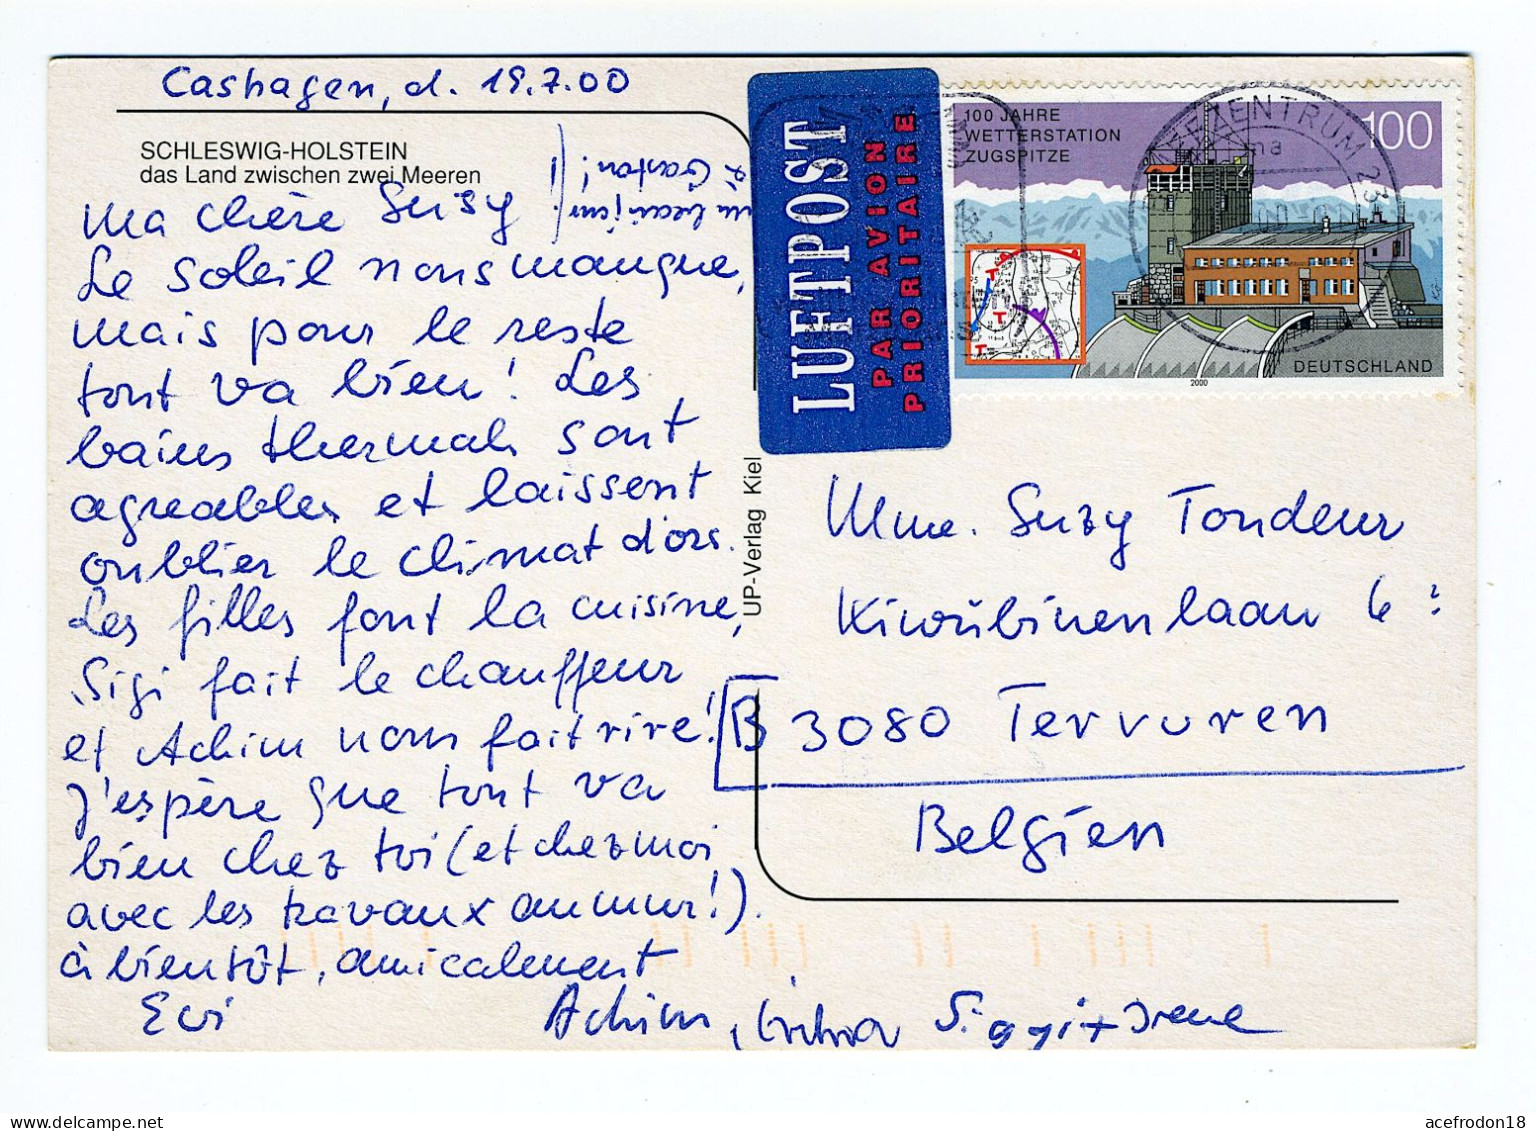 Cashagen, d. 19.7.00
SCHLESWIG-HOLSTEIN
das Land zwischen zwei Meeren
à Gaston!
Ma chère Suzy
Le soleil nous manque,
mais pour le reste
tout va bien! Les
bains thermals sont
agreables et laissent
oublier le climat d'ors.
Les filles font la cuisine,
Sigi fait le chauffeur
et Achim nous fait rire!
J'espère que tout va
bien chez toi (et chez moi
avec les travaux au mur!).
à bientôt, amicalement
Evi
Achim, Siggi + Irene
UP-Verlag Kiel
LUFTPOST
PAR AVION
PRIORITAIRE
100 JAHRE
WETTERSTATION
ZUGSPITZE
100
DEUTSCHLAND
2000
BRIEFZENTRUM 23
Mme. Suzy Tondeur
laan 6?
B 3080 Tervuren
Belgien
acefrodon18